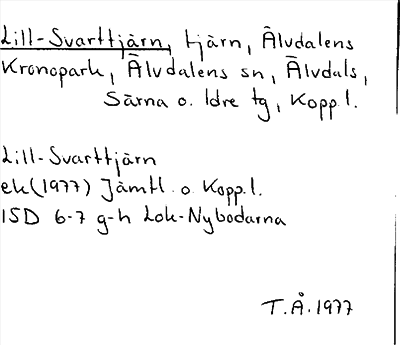 Lill-Svarttjärn, tjärn, Älvdalens
Kronopark, Älvdalens sn, Älvdals,
Särna o. Idre tg, Kopp.l.
Lill-Svarttjärn
ek(1977) Jämtl. o. Kopp.l.
15D 6-7 g-h Lok-Nybodarna
T.Å.1977